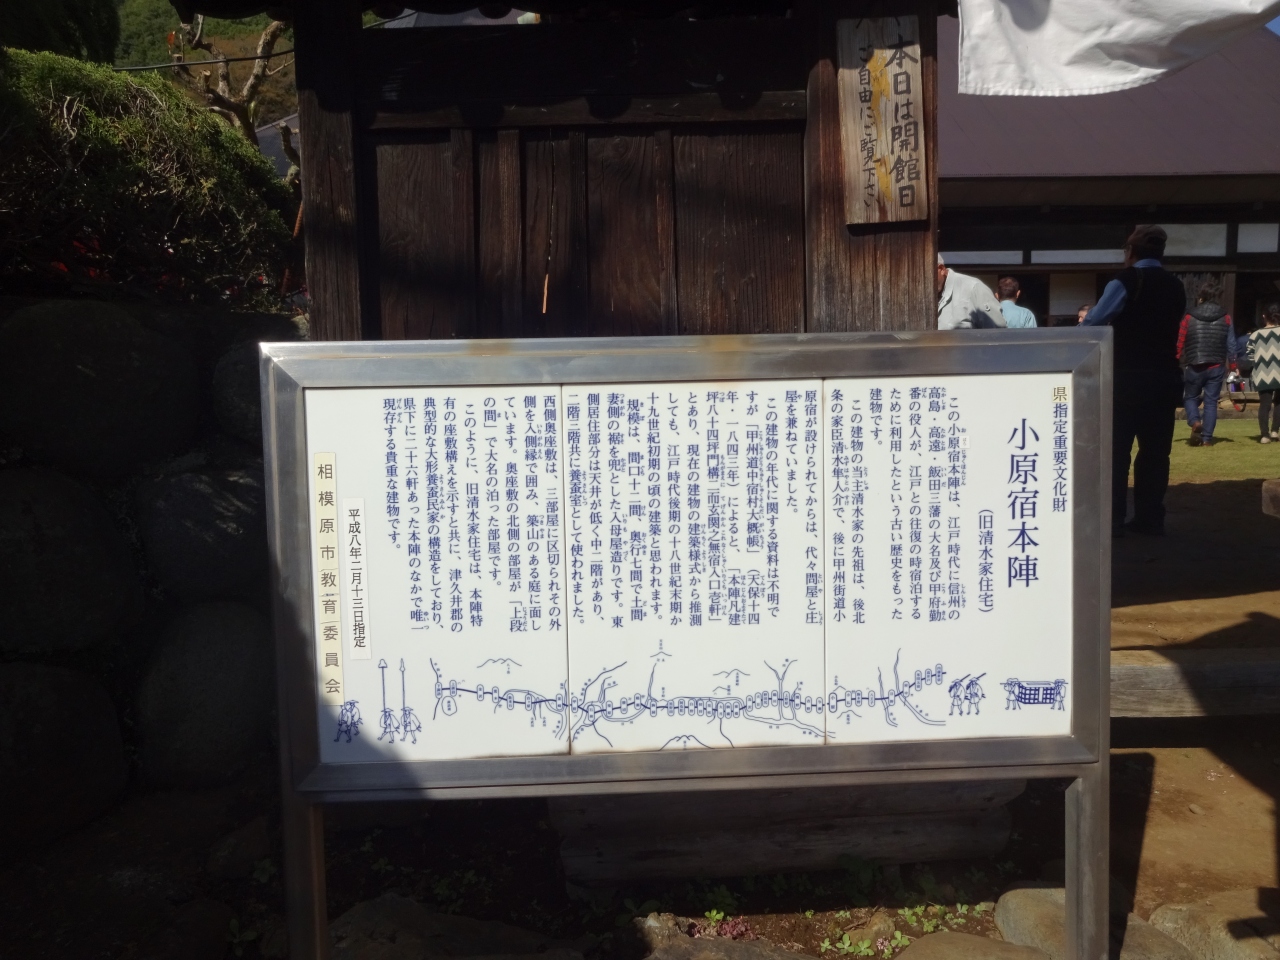 本日は開館日
ご自由にご覧下さい
県指定重要文化財
小原宿本陣
(旧清水家住宅)
この小原宿本陣は、江戸時代に信州の
高島・高遠・飯田三藩の大名及び甲府勤
番の役人が、江戸との往復の時宿泊する
ために利用したという古い歴史をもった
建物です。
この建物の当主清水家の先祖は、後北
条の家臣清水隼人介で、後に甲州街道小
原宿が設けられてからは、代々問屋と庄
屋を兼ねていました。
この建物の年代に関する資料は不明で
すが「甲州道中宿村大概帳」(天保十四
年・一八四三年)によると、「本陣凡建
坪八十四坪門構二而玄関之無宿入口壱軒」
とあり、現在の建物の建築様式から推測
しても、江戸時代後期の十八世紀末期か
十九世紀初期の頃の建築と思われます。
規模は、間口十二間、奥行七間で土間
妻側の裾を兜とした入母屋造りです。東
側居住部分は天井が低く中二階があり、
二階三階共に養蚕室として使われました。
西側奥座敷は、三部屋に区切られその外
側を入側縁で囲み、築山のある庭に面し
ています。奥座敷の北側の部屋が「上段
の間」で大名の泊った部屋です。
このように、旧清水家住宅は、本陣特
有の座敷構えを示すと共に、津久井郡の
典型的な大形養蚕民家の構造をしており、
県下に二十六軒あった本陣のなかで唯一
現存する貴重な建物です。
平成八年二月十三日指定
相模原市教育委員会